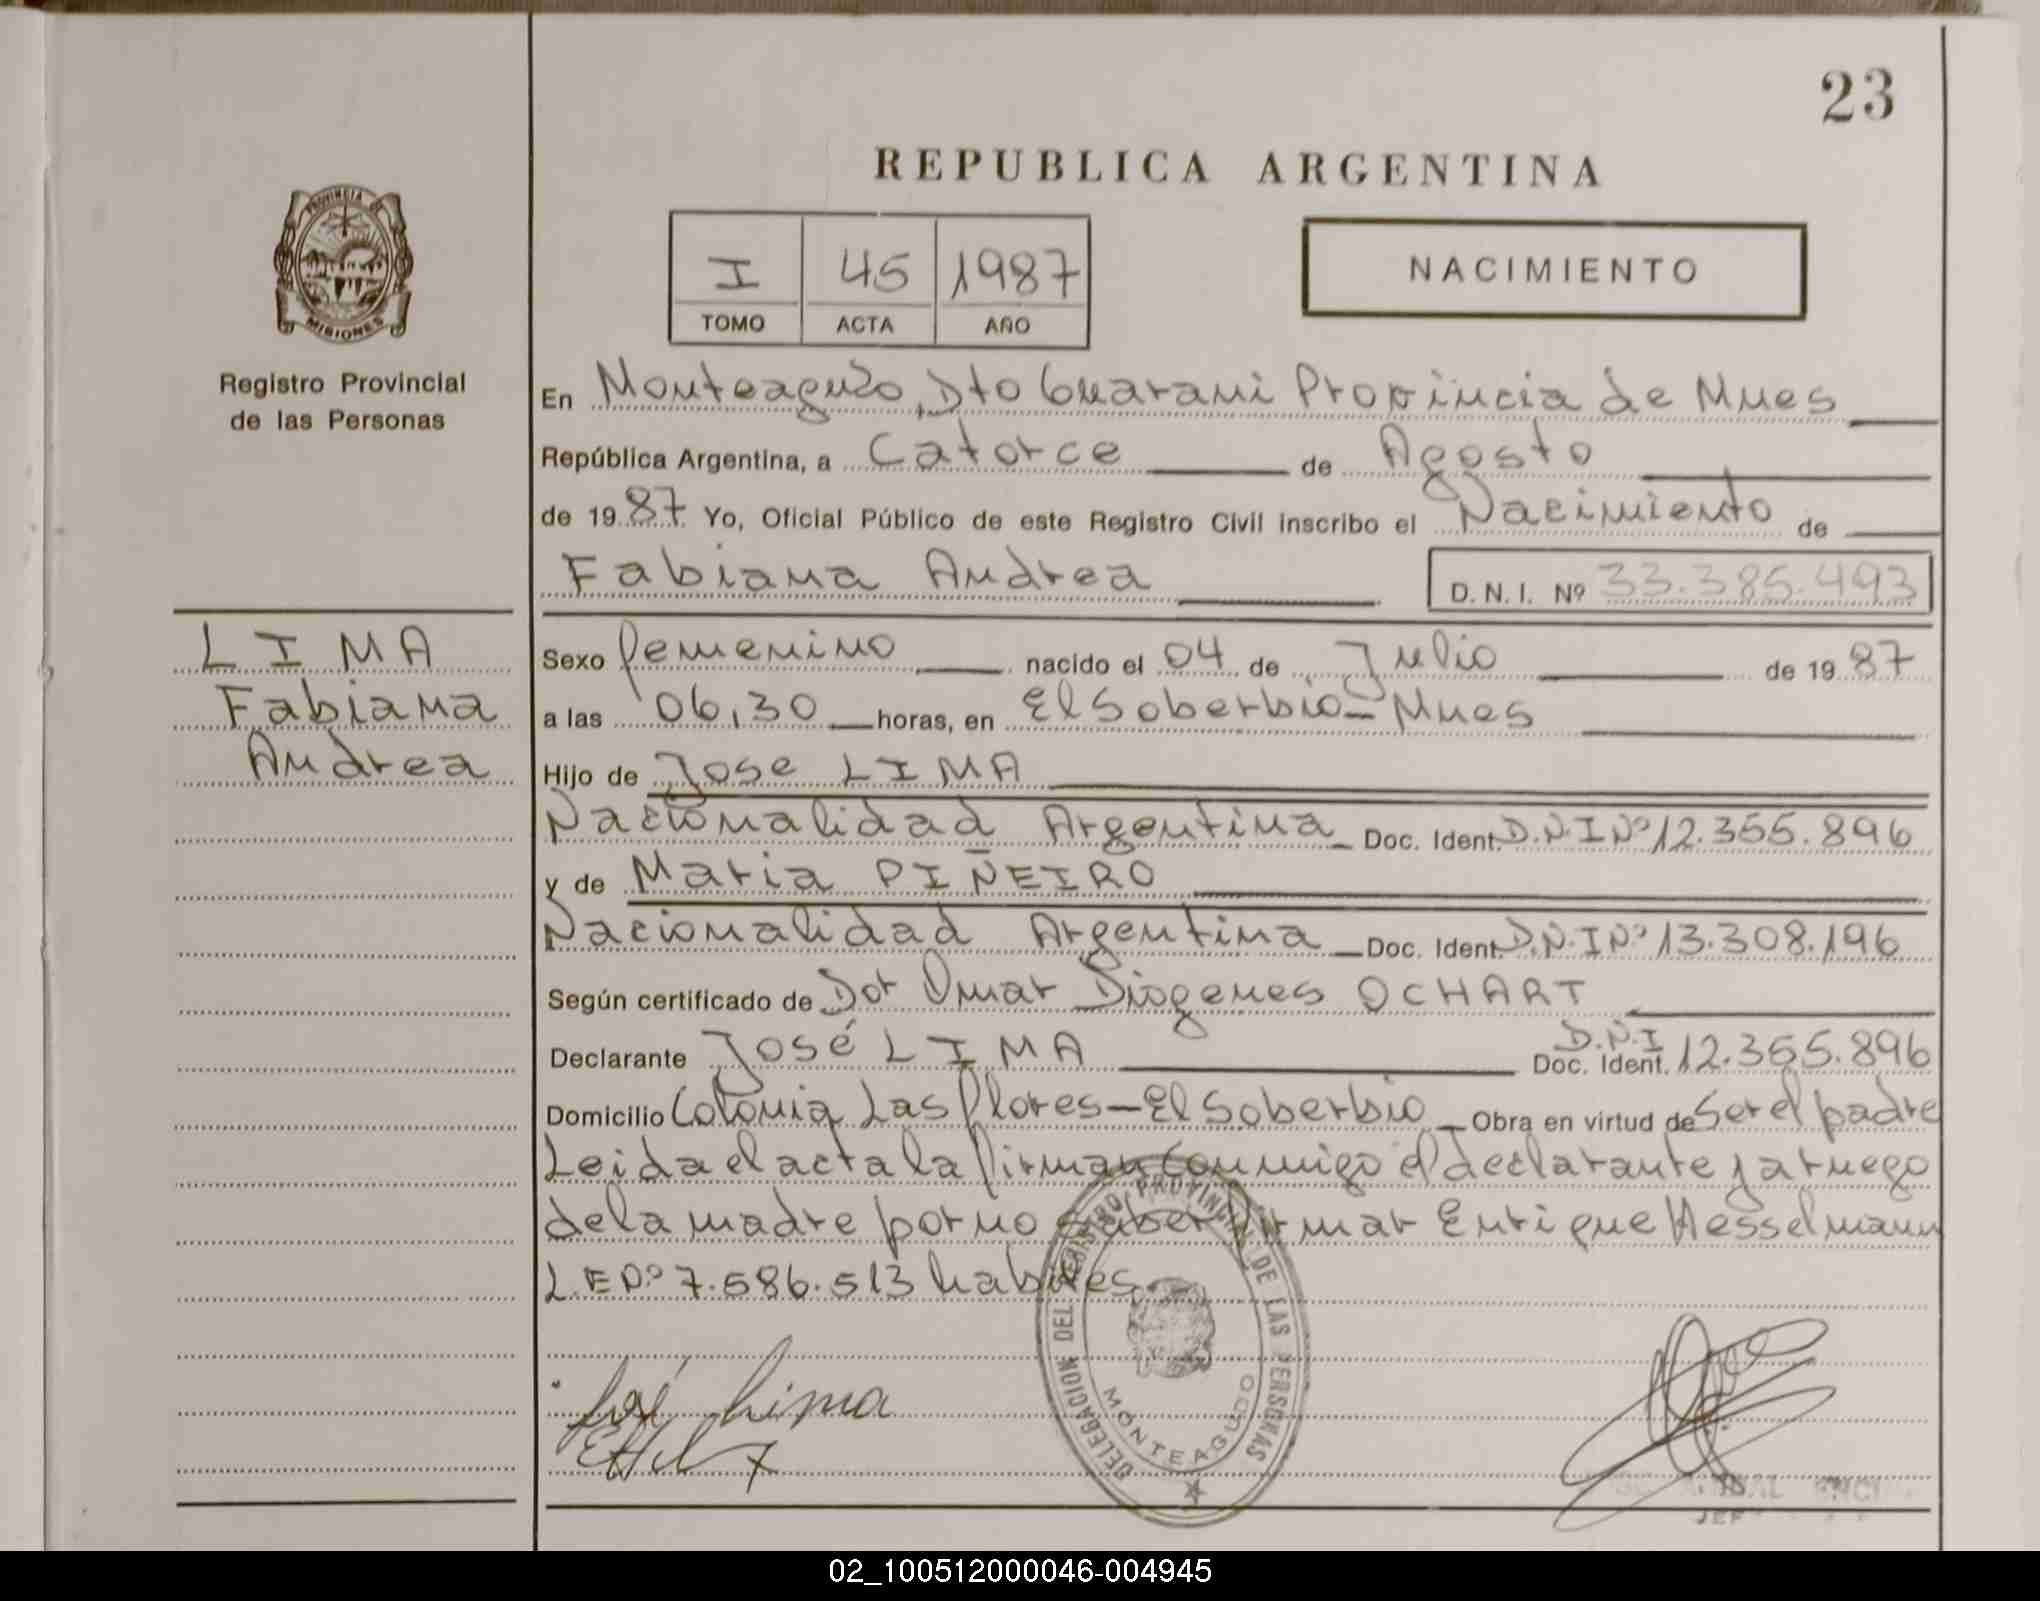 23
REPUBLICA ARGENTINA
PROVINCIA DE
MISIONES
Registro Provincial
de las Personas
I 45 1987
TOMO ACTA AÑO
NACIMIENTO
En Monteagudo, Dto Guarani Provincia de Mnes
República Argentina, a Catorce de Agosto
de 1987 Yo, Oficial Público de este Registro Civil inscribo el Nacimiento de
Fabiana Andrea D.N.I. Nº 33.385.493
LIMA
Fabiana
Andrea
Sexo femenino nacido el 04 de Julio de 1987
a las 06,30 horas, en El Soberbio - Mnes
Hijo de Jose LIMA
Nacionalidad Argentina Doc. Ident. D.N.I Nº 12.355.896
y de Maria PIÑEIRO
Nacionalidad Argentina Doc. Ident. D.N.I Nº 13.308.196
Según certificado de Dor Omar Diogenes OCHART
Declarante José LIMA Doc. Ident. D.N.I 12.355.896
Domicilio Colonia Las flores - El Soberbio Obra en virtud de Ser el padre
Leida el acta la firman conmigo el declarante y a ruego
de la madre por no saber firmar Enrique Hesselmann
L.E Nº 7.586.513 habiles.
José Lima
DELEGACION DEL REGISTRO PROVINCIAL DE LAS PERSONAS
MONTEAGUDO
JEF
02_100512000046-004945